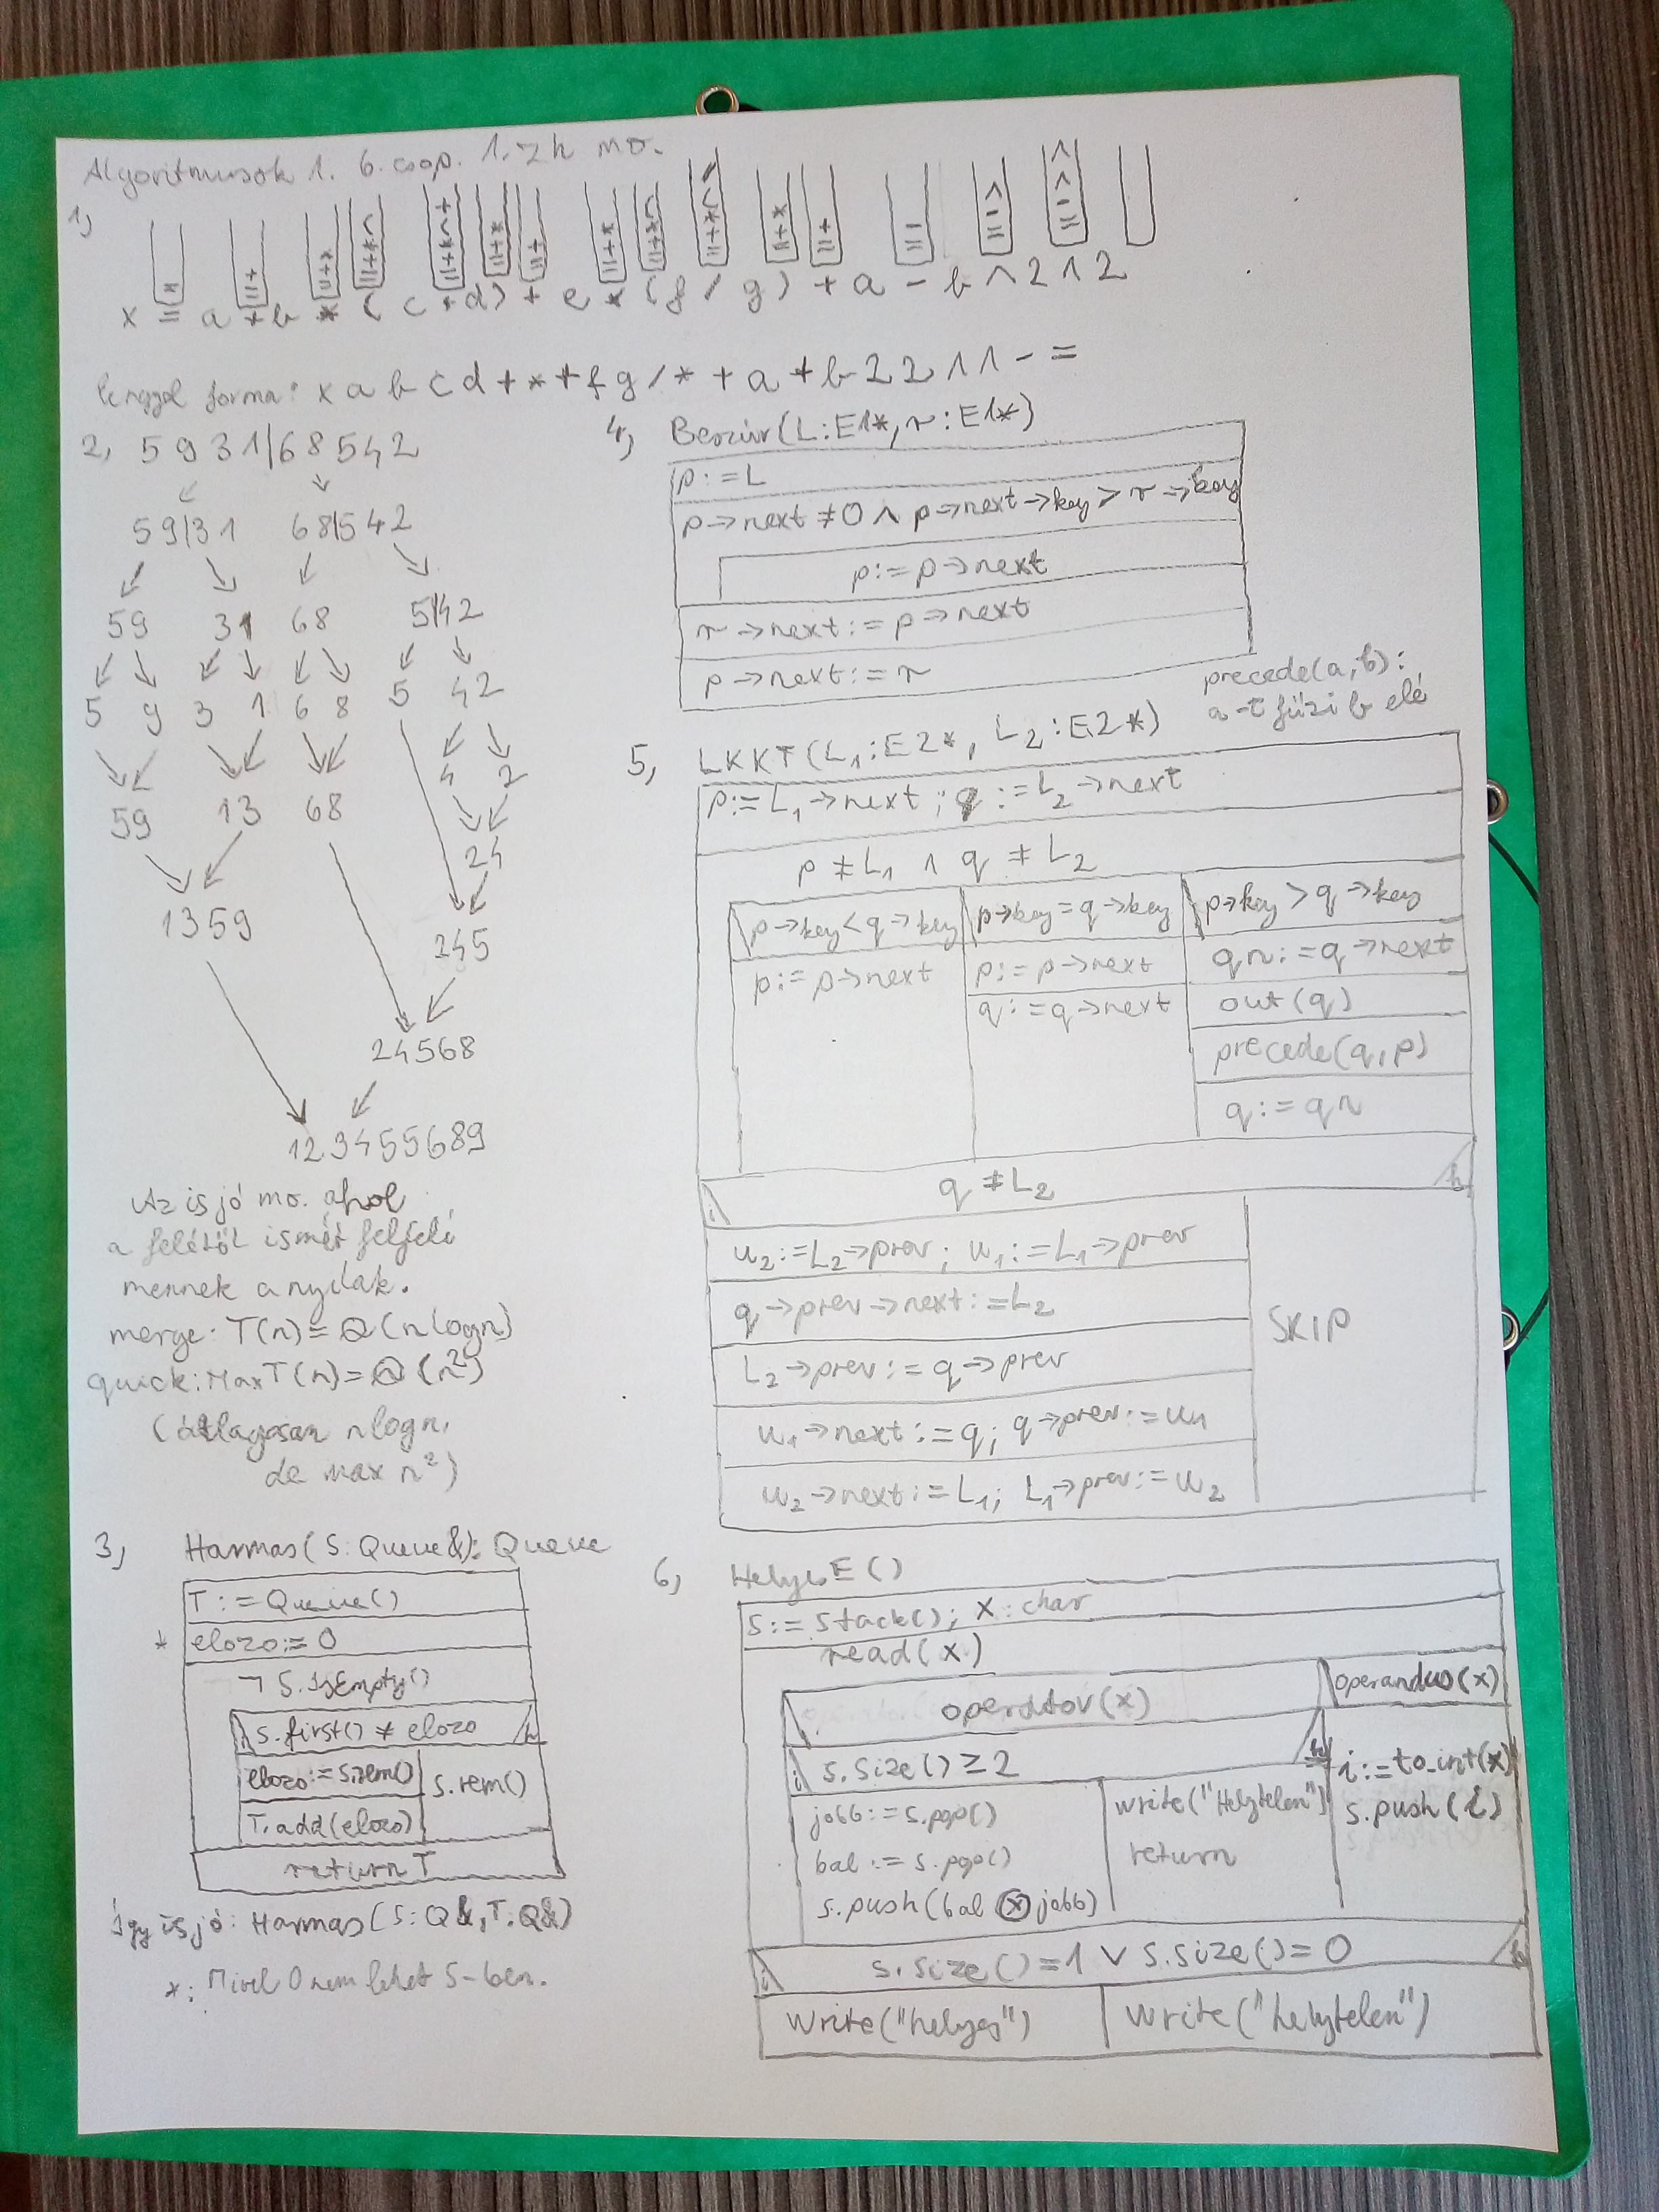 Algoritmusok 1. 6. csop. 1. zh mo.
1,
x = a + b * ( c + d ) + e * ( f / g ) + a - b ^ 2 ^ 2
lengyel forma: x a b c d + * + f g / * + a + b 2 2 ^ ^ - =
2, 5 9 3 1 | 6 8 5 4 2
59|31 68|542
59 31 68 5|42
5 9 3 1 6 8 5 42
4 2
59 13 68
24
1359
245
24568
123455689
Az is jó mo. ahol
a felétől ismét felfelé
mennek a nyilak.
merge: T(n) = Θ(n logn)
quick: MaxT(n) = Θ(n²)
(átlagosan nlogn,
de max n²)
3, Harmas(S:Queue&): Queue
T := Queue()
* elozo := 0
¬ S.isEmpty()
i S.first() ≠ elozo h
elozo := S.rem() S.rem()
T.add(elozo)
return T
Így is jó: Harmas(S:Q&, T:Q&)
*: Mivel 0 nem lehet S-ben.
4, Beszúr(L:E1*, r:E1*)
p := L
p→next ≠ 0 ∧ p→next→key > r→key
p := p→next
r→next := p→next
p→next := r
precede(a,b):
a-t fűzi b elé
5, LKKT(L₁:E2*, L₂:E2*)
p := L₁→next ; q := L₂→next
p ≠ L₁ ∧ q ≠ L₂
p→key < q→key p→key = q→key p→key > q→key
p := p→next p := p→next qn := q→next
q := q→next out(q)
precede(q,p)
q := qn
i q ≠ L₂ h
u₂ := L₂→prev ; u₁ := L₁→prev
q→prev→next := L₂
SKIP
L₂→prev := q→prev
u₁→next := q; q→prev := u₁
u₂→next := L₁; L₁→prev := u₂
6, HelyesE()
S := Stack(); x : char
read(x)
operátor(x) operandus(x)
i S.size() ≥ 2 h i := to_int(x)
jobb := S.pop() write("Helytelen") S.push(i)
bal := S.pop() return
S.push(bal ⓧ jobb)
i S.size() = 1 ∨ S.size() = 0 h
write("helyes") write("helytelen")